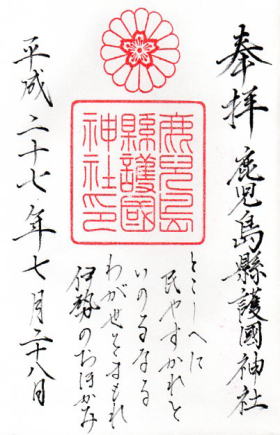 奉拝
鹿児島縣護國神社
鹿兒島
縣護國
神社印
とこしへに
民やすかれと
いのるなる
わがよをまもれ
伊勢のおほかみ
平成二十七年七月二十八日